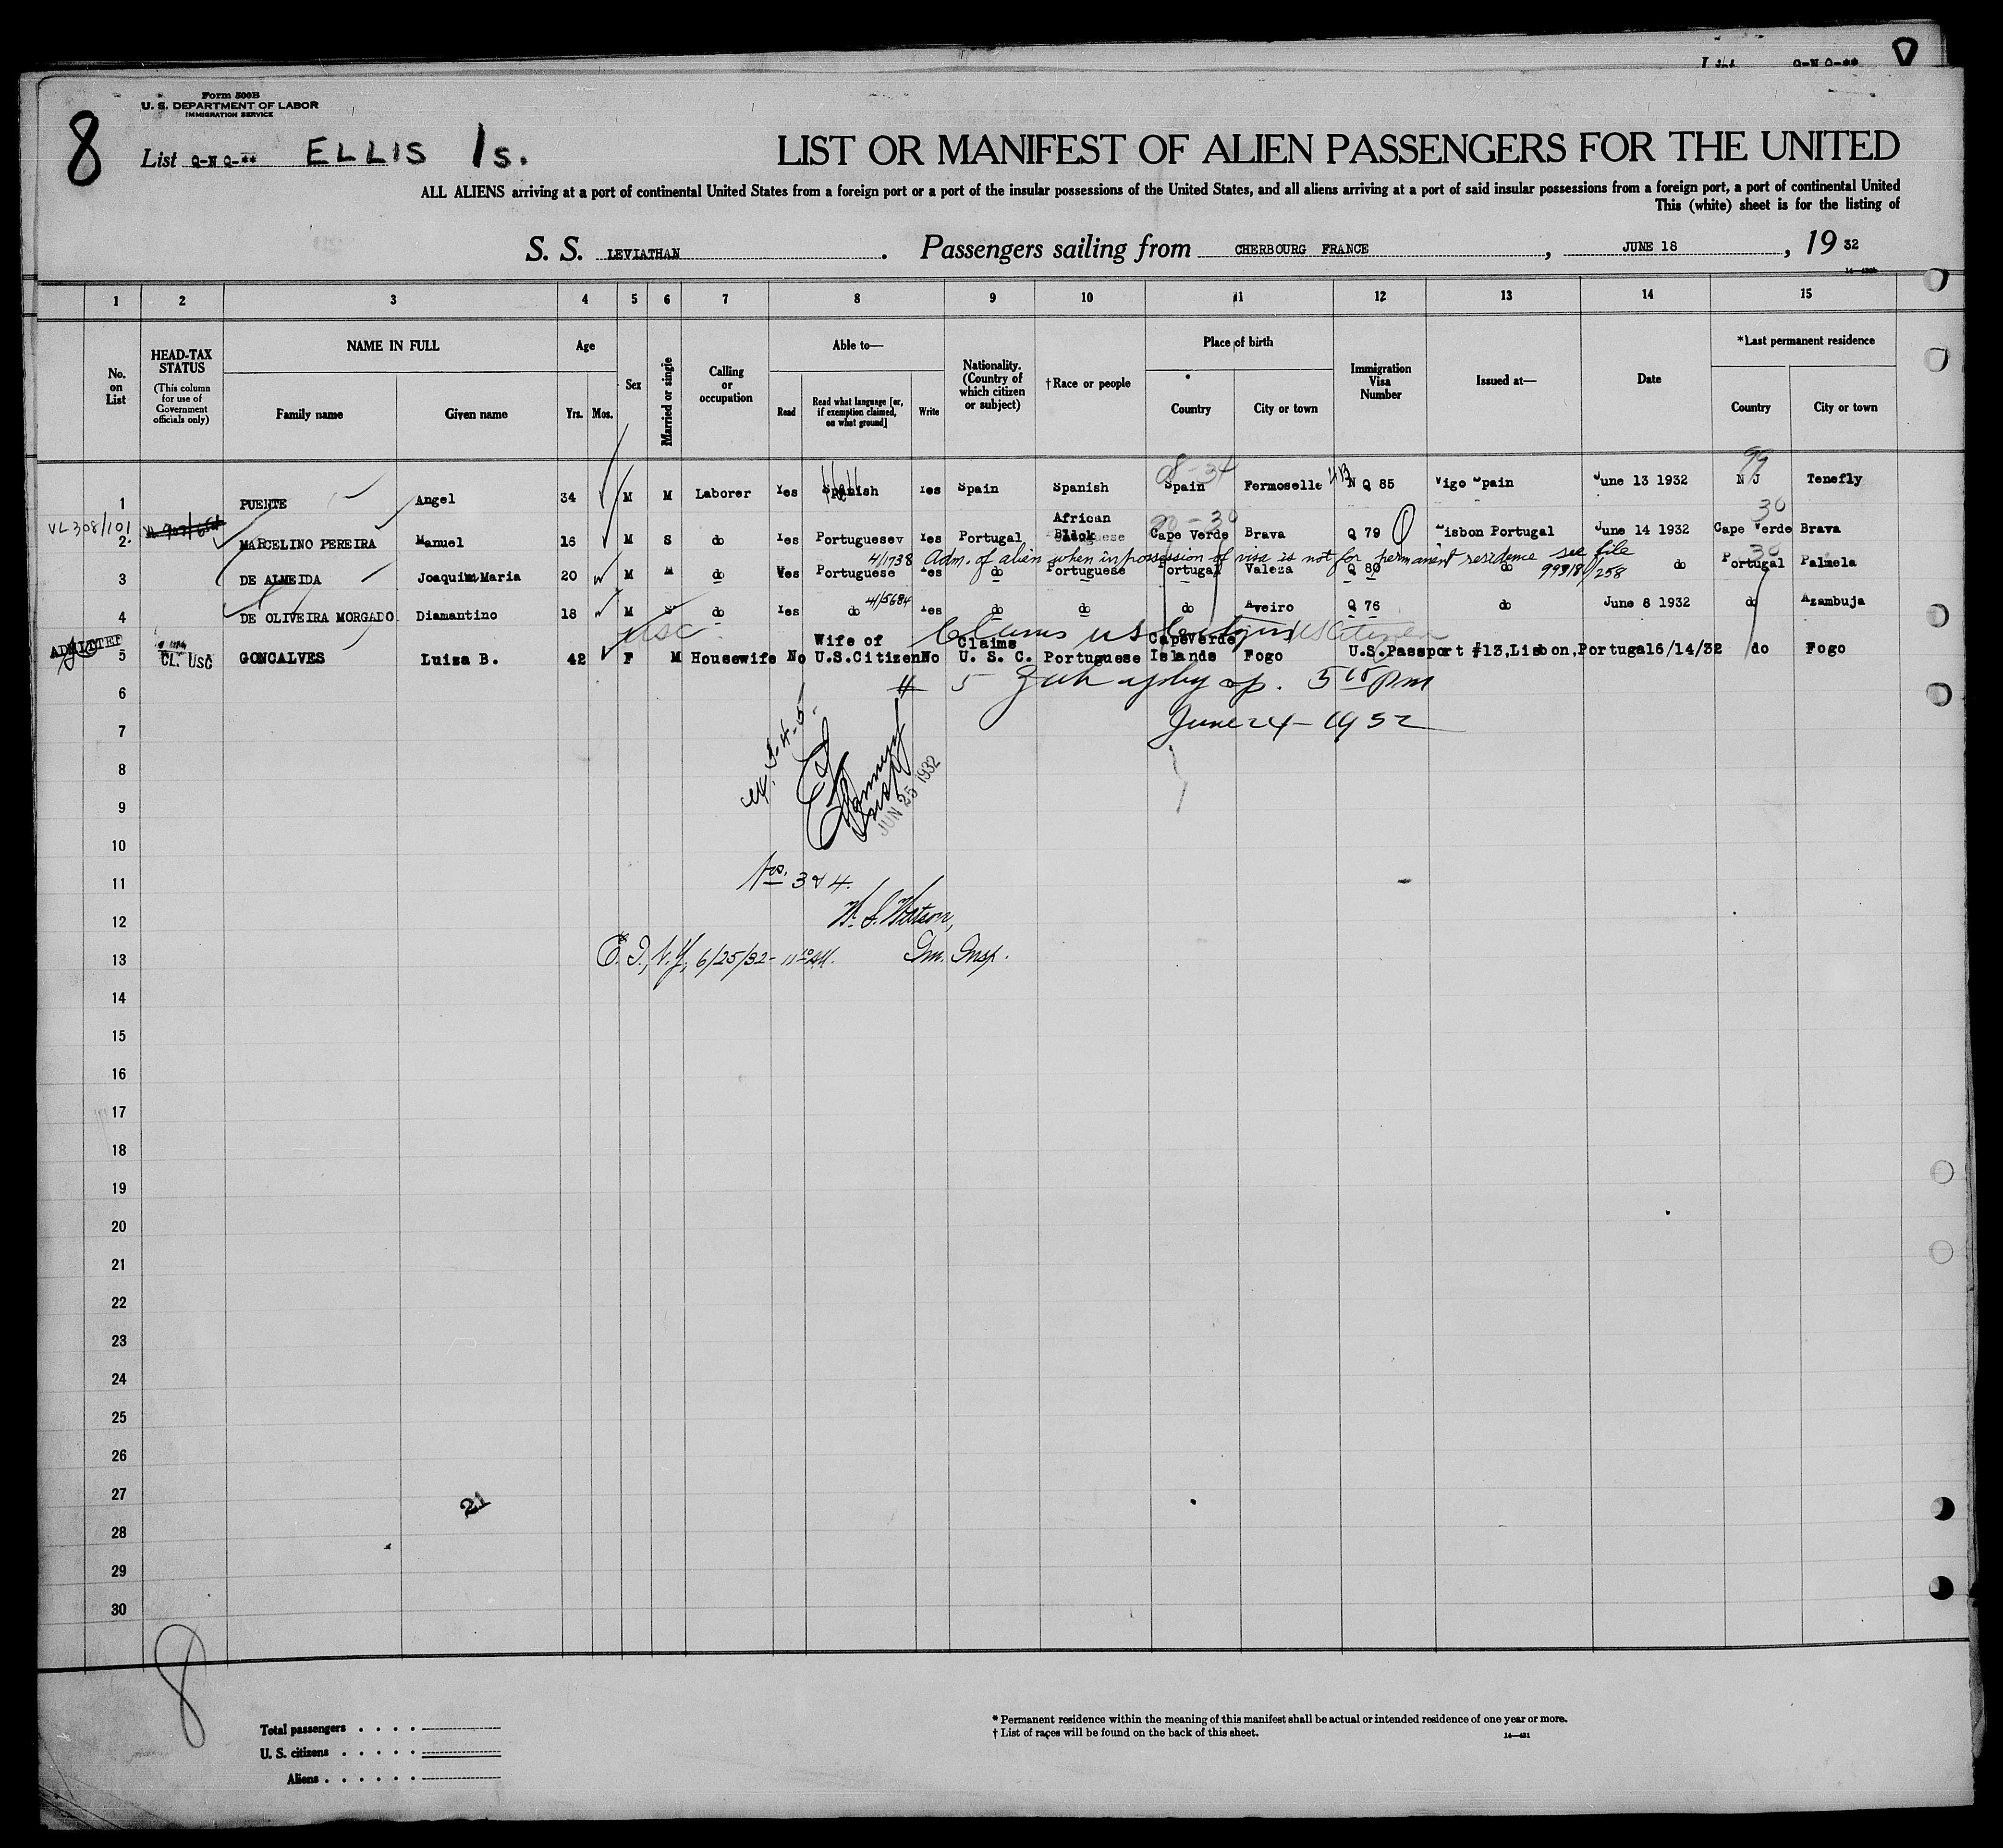 Form 500B
U. S. DEPARTMENT OF LABOR
IMMIGRATION SERVICE
8
List Q-N Q-** ELLIS Is.
LIST OR MANIFEST OF ALIEN PASSENGERS FOR THE UNITED
ALL ALIENS arriving at a port of continental United States from a foreign port or a port of the insular possessions of the United States, and all aliens arriving at a port of said insular possessions from a foreign port, a port of continental United
This (white) sheet is for the listing of
S. S. LEVIATHAN . Passengers sailing from CHERBOURG FRANCE , JUNE 18 , 19 32
1 2 3 4 5 6 7 8 9 10 11 12 13 14 15
No. on List
HEAD-TAX STATUS (This column for use of Government officials only)
NAME IN FULL Family name Given name
Age Yrs. Mos.
Sex
Married or single
Calling or occupation
Able to— Read Read what language [or, if exemption claimed, on what ground] Write
Nationality. (Country of which citizen or subject)
†Race or people
Place of birth Country City or town
Immigration Visa Number
Issued at—
Date
*Last permanent residence Country City or town
08-34 99
1 PUENTE Angel 34 M M Laborer Yes Spanish Yes Spain Spanish Spain Fermoselle N Q 85 Vigo Spain June 13 1932 N J Tenefly
African 30
VL 308/101 2 MARCELINO PEREIRA Manuel 16 M S do Yes Portuguese Yes Portugal Black Cape Verde Brava Q 79 Lisbon Portugal June 14 1932 Cape Verde Brava
4/1738 Adm. of alien when in possession of visa is not for permanent residence see file 99318/258
3 DE ALMEIDA Joaquim Maria 20 M M do Yes Portuguese Yes do Portuguese Portugal Valeza Q 80 do do Portugal Palmela
4/5684
4 DE OLIVEIRA MORGADO Diamantino 18 M S do Yes do Yes do do do Aveiro Q 76 do June 8 1932 do Azambuja
USC Claims US Citizen
ADMITTED CL. USC
5 GONCALVES Luiza B. 42 F M Housewife No Wife of U.S.Citizen No Claims U. S. C. Portuguese CapeVerde Islands Fogo U.S.Passport #13,Lisbon,Portugal 6/14/32 do Fogo
6 # 5
7 June 24 - 1932
8
9 JUN 25 1932
10
11 Nos. 3 & 4.
12
13 E. I., N.Y, 6/25/32 Im. Insp.
14
15
16
17
18
19
20
21
22
23
24
25
26
27
21
28
29
30
8
Total passengers . . . .
U. S. citizens . . . . .
Aliens . . . . . .
* Permanent residence within the meaning of this manifest shall be actual or intended residence of one year or more.
† List of races will be found on the back of this sheet.